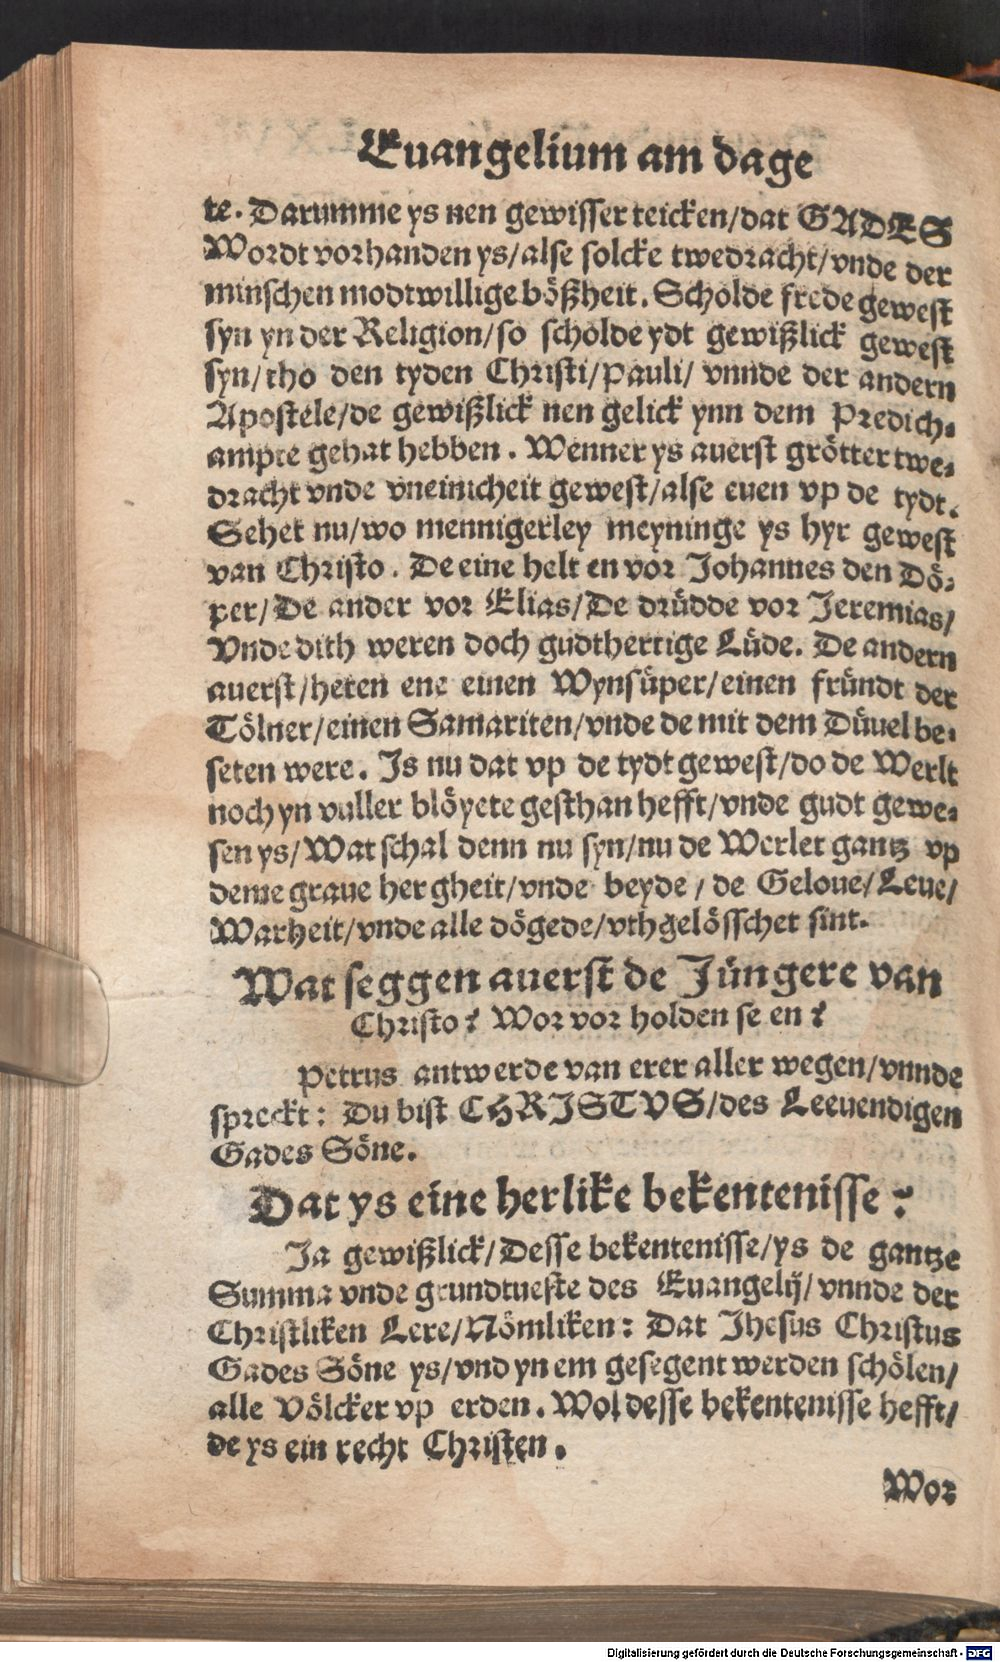 Euangelium am dage
te. Darumme ys nen gewisser teicken/dat GADES
Wordt vorhanden ys/alse solcke twedracht/vnde der
minschen modtwillige bößheit. Scholde frede gewest
syn yn der Religion/so scholde ydt gewißlick gewest
syn/tho den tyden Christi/Pauli/ vnnde der andern
Apostele/de gewißlick nen gelick ynn dem Predich-
ampte gehat hebben. Wenner ys auerst grötter twe-
dracht vnde vneinicheit gewest/alse euen vp de tydt.
Sehet nu/wo mennigerley meyninge ys hyr gewest
van Christo. De eine helt en vor Johannes den Dö-
per/De ander vor Elias/De drüdde vor Jeremias/
Vnde dith weren doch gudthertige Lüde. De andern
auerst/heten ene einen Wynsüper/einen fründt der
Tölner/einen Samariten/vnde de mit dem Düuel be-
seten were. Is nu dat vp de tydt gewest/do de Werlt
noch yn vuller blöyete gesthan hefft/vnde gudt gewe-
sen ys/Wat schal denn nu syn/nu de Werlet gantz vp
deme graue her gheit/vnde beyde/ de Geloue/Leue/
Warheit/vnde alle dögede/vthgelösschet sint.
Wat seggen auerst de Jüngere van
Christo? Wor vor holden se en?
Petrus antwerde van erer aller wegen/vnnde
spreckt: Du bist CHRISTVS/des Leeuendigen
Gades Söne.
Dat ys eine herlike bekentenisse?
Ja gewißlick/Desse bekentenisse/ys de gantze
Summa vnde grundtueste des Euangelij/ vnnde der
Christliken Lere/Nömliken: Dat Jhesus Christus
Gades Söne ys/vnd yn em gesegent werden schölen/
alle Völcker vp erden. Wol desse bekentenisse hefft/
de ys ein recht Christen.
Wor
Digitalisierung gefördert durch die Deutsche Forschungsgemeinschaft - DFG